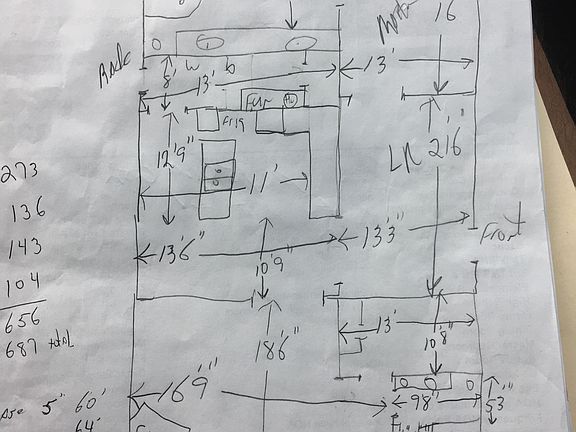 16
Back
13'
8'
13'
W D
Fur
Frig
12'9"
LR 21'6"
273
136
143
104
656
687 total
11'
13'6"
13'3"
Front
10'9"
18'6"
13'
10'8"
16'9"
98"
53"
5" 60'
64'